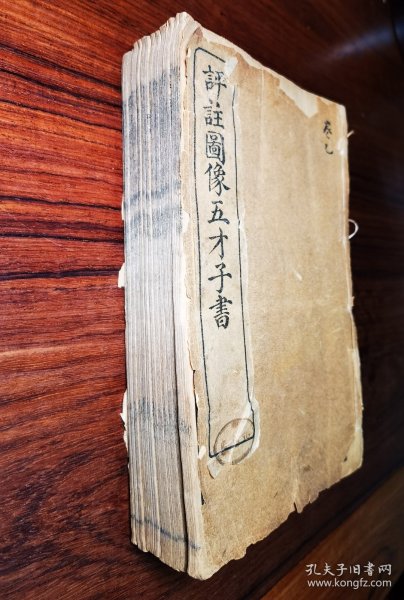 評註圖像五才子書
孔夫子旧书网
www.kongfz.com